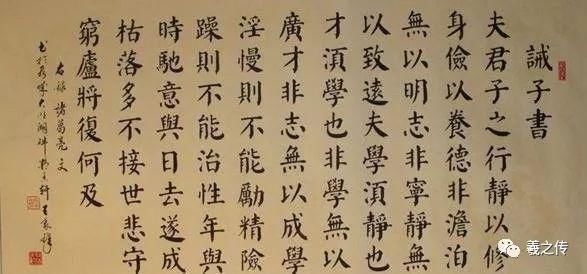 誡子書
夫君子之行靜以修
身儉以養德非澹泊
無以明志非寧靜無
以致遠夫學湏靜也
才湏學也非學無以
廣才非志無以成學
淫慢則不能勵精險
躁則不能治性年與
時馳意與日去遂成
枯落多不接世悲守
窮廬將復何及
右録諸葛亮文
羲之传